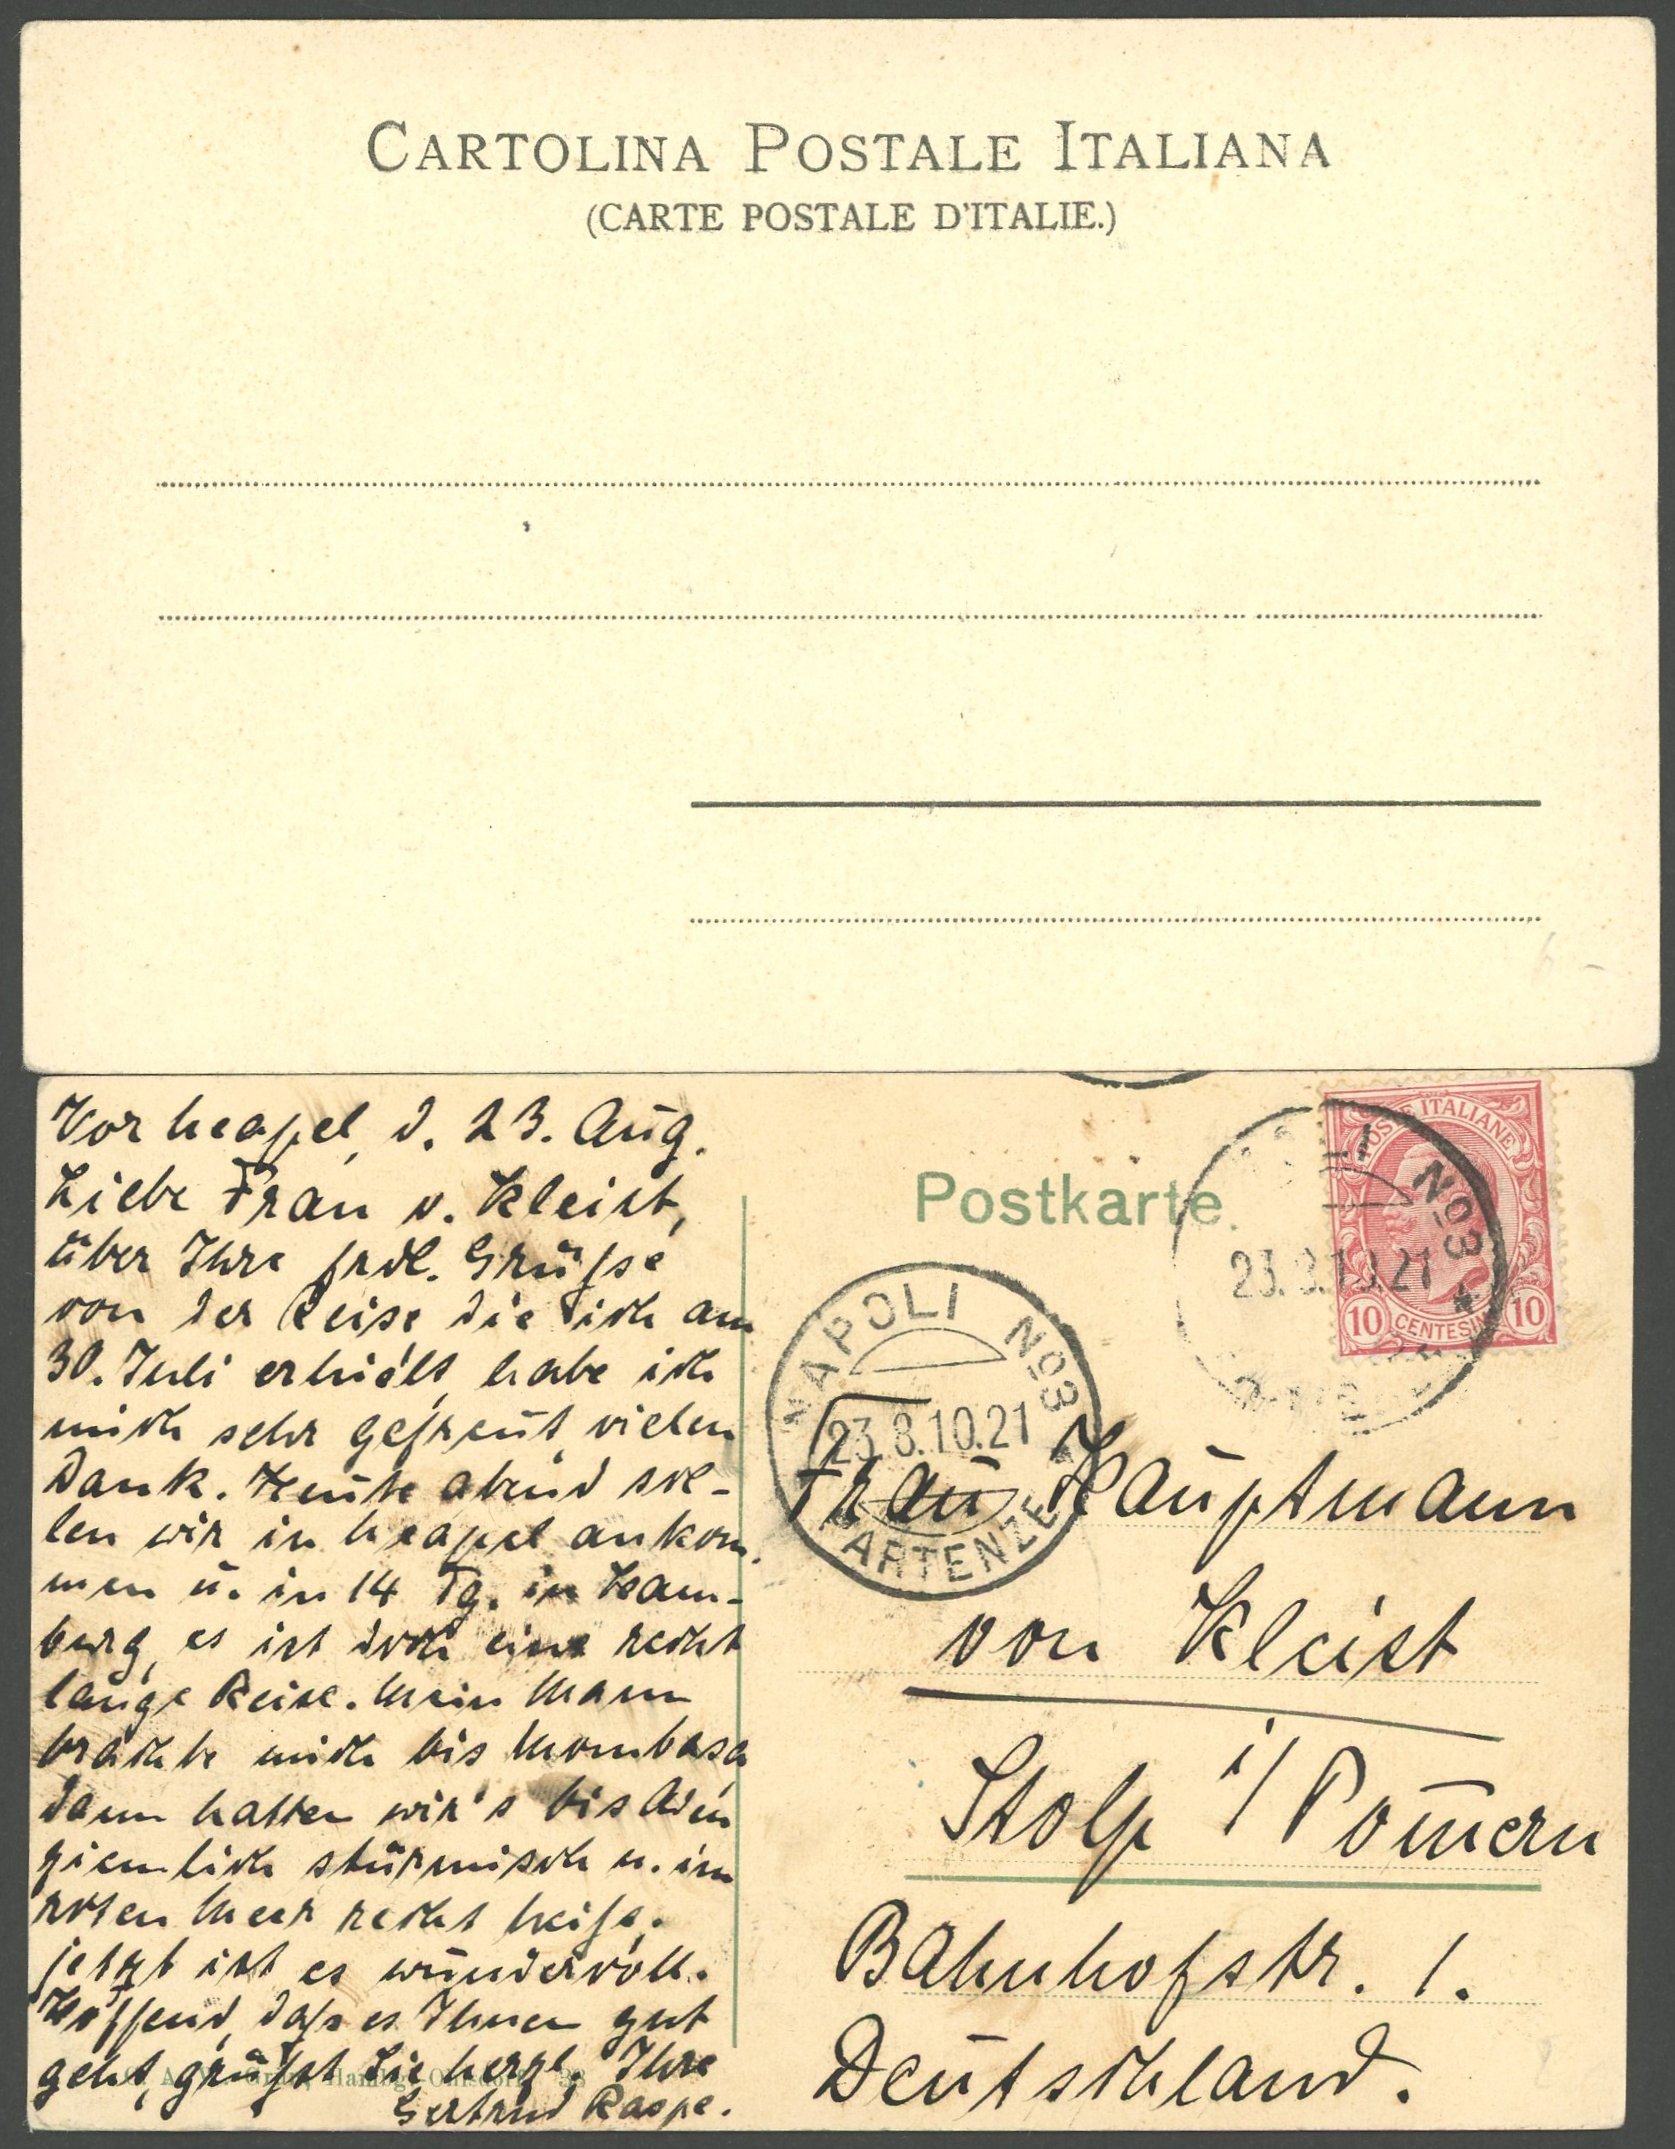 CARTOLINA POSTALE ITALIANA
(CARTE POSTALE D'ITALIE.)
Vor Neapel, d. 23. Aug.
Liebe Frau v. Kleist,
über Ihre frdl. Grüße
von der Reise die ich am
30. Juli erhielt, habe ich
mich sehr gefreut, vielen
Dank. Heute abend sol-
len wir in Neapel ankom-
men u. in 14 Tg. in Ham-
burg, es ist doch eine recht
lange Reise. Mein Mann
brachte mich bis Mombasa
dann hatten wir's bis Aden
ziemlich stürmisch u. im
roten Meer recht heiß,
jetzt ist es wundervoll.
Hoffend, daß es Ihnen gut
geht, grüßt Sie herzl. Ihre
Gertrud Raspe.
Postkarte.
POSTE ITALIANE
10 CENTESIMI 10
No3
23.8.10.21
NAPOLI No3
23.8.10.21
Frau Hauptmann
von Kleist
Stolp i/Pom̄ern
Bahnhofstr. 1.
Deutschland.